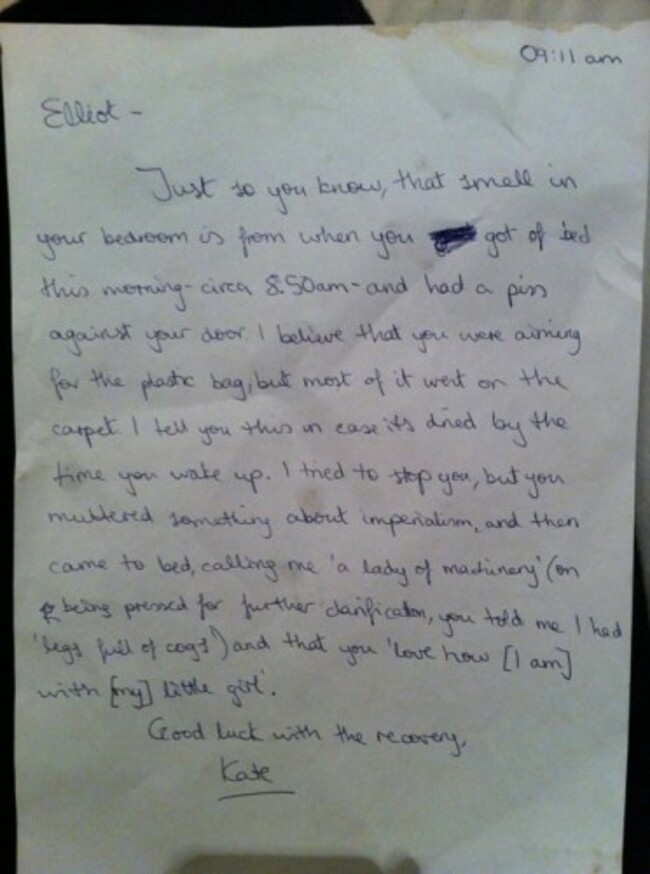 09:11 am
Elliot -
Just so you know, that smell in
your bedroom is from when you got of bed
this morning - circa 8:50am - and had a piss
against your door. I believe that you were aiming
for the plastic bag, but most of it went on the
carpet. I tell you this in case its dried by the
time you wake up. I tried to stop you, but you
muttered something about imperialism, and then
came to bed, calling me 'a lady of machinery' (on
being pressed for further clarification, you told me I had
'legs full of cogs') and that you 'love how [I am]
with [my] little girl'.
Good luck with the recovery,
Kate